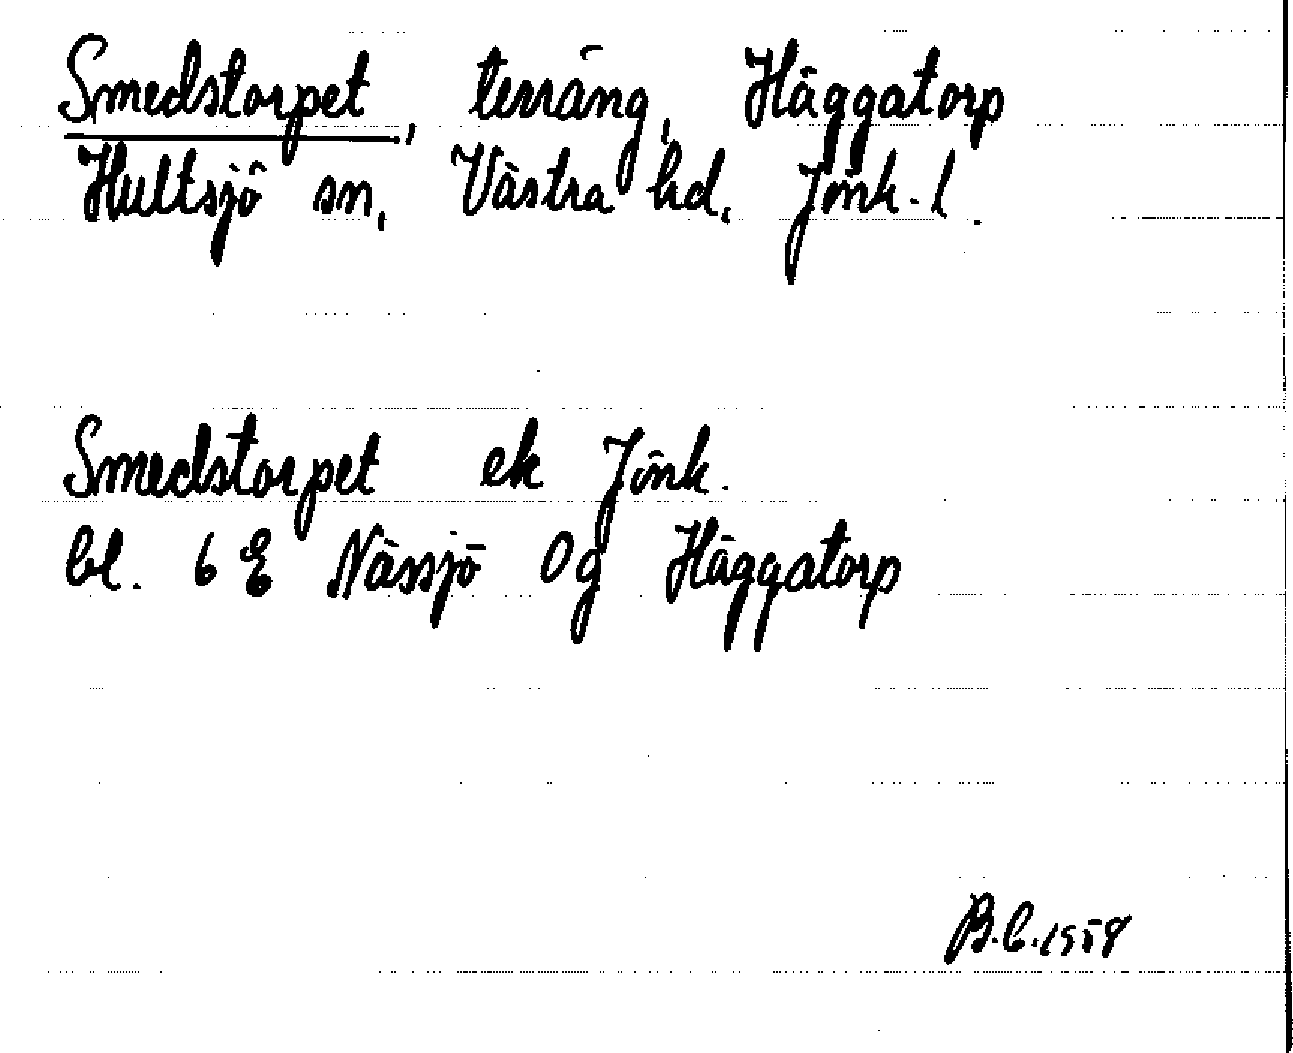 Smedstorpet, terräng, Häggatorp
Hultsjö sn, Västra hd, Jönk. l.
Smedstorpet ek Jönk.
bl. 6 E Nässjö 0g Häggatorp
B.C. 1958